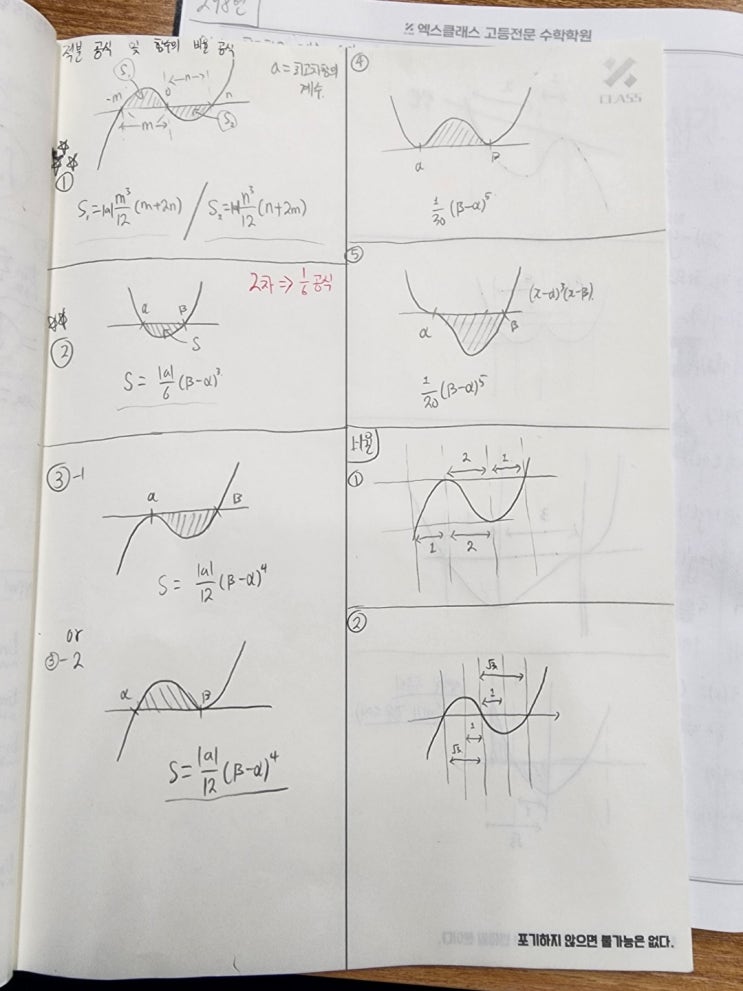 278번
엑스클래스 고등전문 수학학원
적분 공식 및 함수의 비율 공식
a = 최고차항의
계수.
S₁
n
-m
0
n
m
S₂
①
S₁=|a|m³/12(m+2n) / S₂=|a|n³/12(n+2m)
2차 => 1/6 공식
②
α β
S
S = |a|/6 (β-α)³
③-1
α β
S = |a|/12 (β-α)⁴
or
③-2
α β
S = |a|/12 (β-α)⁴
CLASS
④
α β
1/30 (β-α)⁵
⑤
(x-α)³(x-β).
α β
1/20 (β-α)⁵
비율
①
2 1
1 2
②
√3
1
1
√3
포기하지 않으면 불가능은 없다.